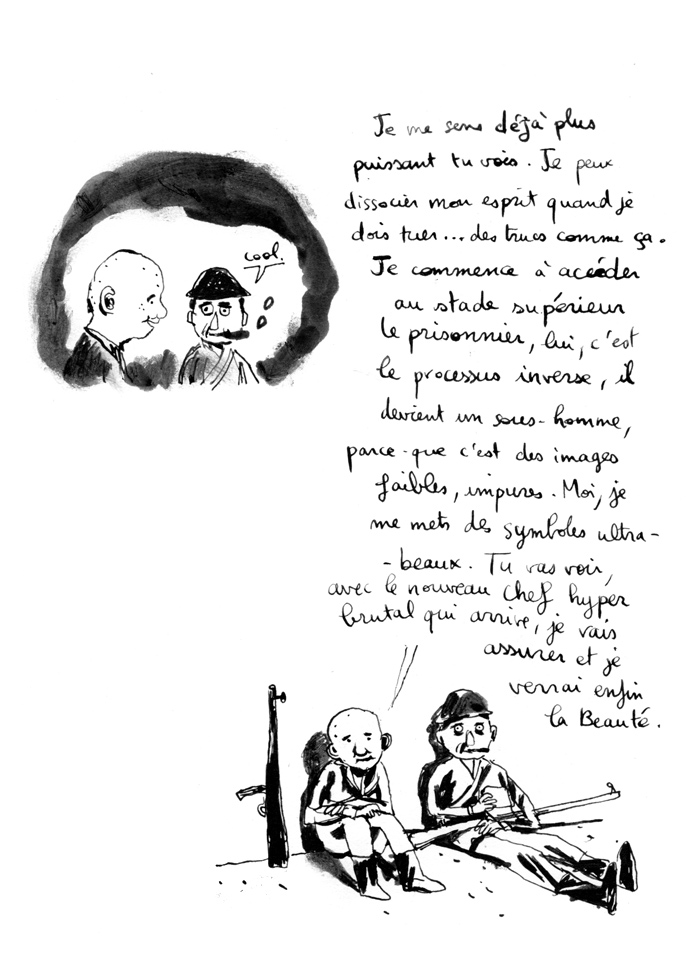 cool.
Je me sens déjà plus
puissant tu vois. Je peux
dissocier mon esprit quand je
dois tuer... des trucs comme ça.
Je commence à accéder
au stade supérieur
le prisonnier, lui, c'est
le processus inverse, il
devient un sous-homme,
parce-que c'est des images
faibles, impures. Moi, je
me mets des symboles ultra-
-beaux. Tu vas voir,
avec le nouveau chef hyper
brutal qui arrive, je vais
assurer et je
verrai enfin
la Beauté.